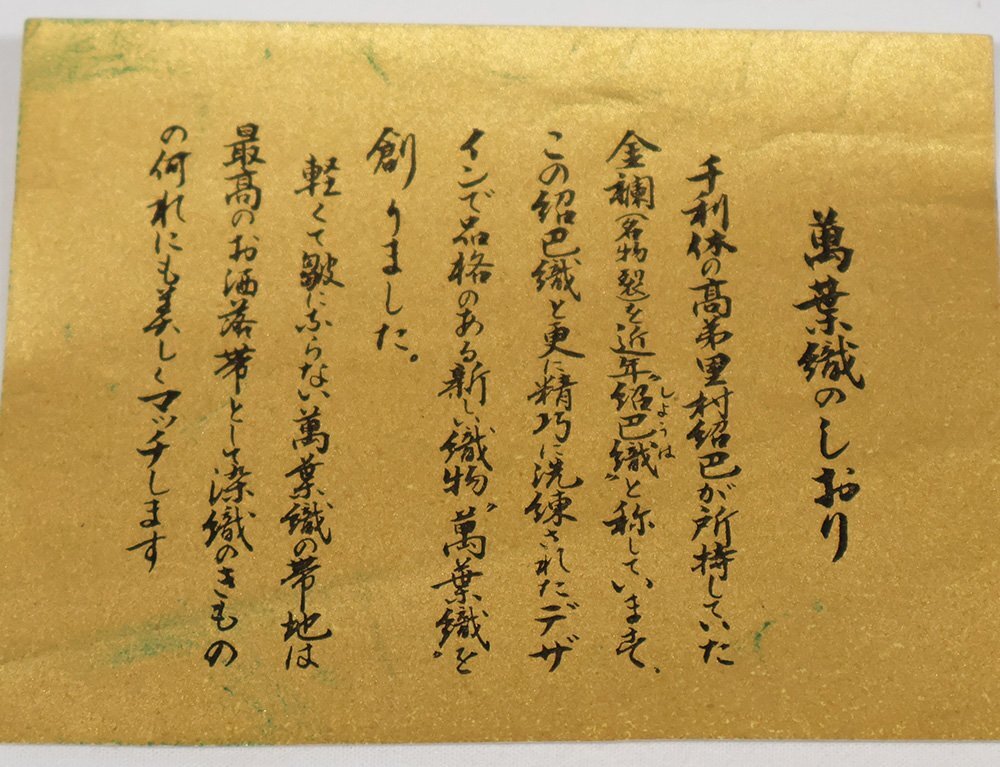 萬葉織のしおり
千利休の高弟里村紹巴が所持していた
金襴(名物裂)を近年"紹巴織"と称しています、
しようは
この紹巴織と更に精巧に洗練されたデザ
インで品格のある新しい織物"萬葉織"を
創りました。
軽くて皺にならない萬葉織の帯地は
最高のお洒落帯として染織のきもの
の何れにも美しくマッチします